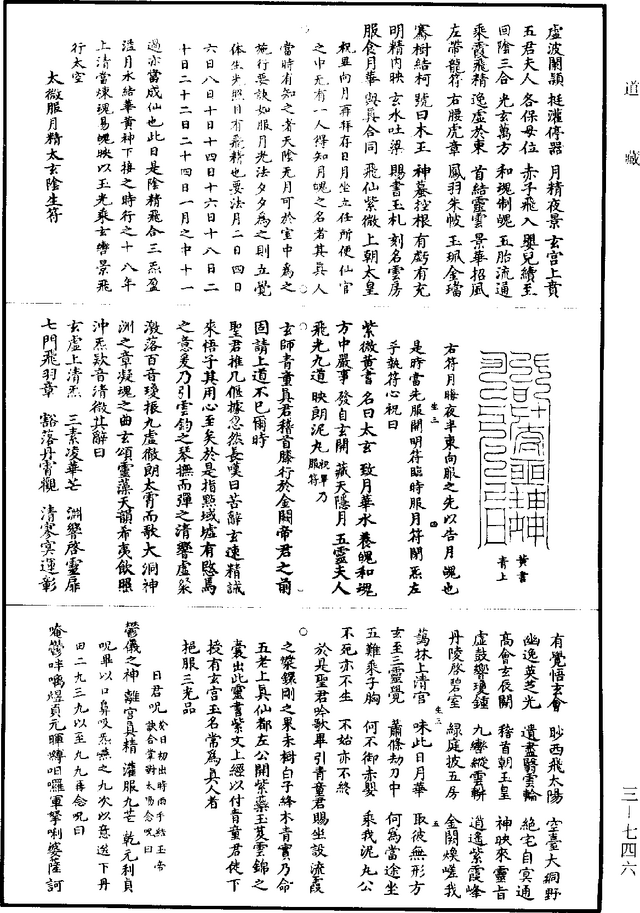 道藏
虛波闌頴 挺濯停器 月精夜景 玄宮上賁
五君夫人 各保母位 赤子飛入 嬰兒續至
回陰三合 光玄萬方 和瑰制魄 五胎流通
乘霞飛精 逸虛於東 首結靈雲 景華招風
左帶龍符 右腰虎章 鳳羽朱帔 玉珮金璫
騫樹結柯 號曰木王 神蟇控根 有虧有充
明精內映 玄水吐梁 賜書玉札 刻名雲房
服食月華 與真合同 飛仙紫微 上朝太皇
祝畢向月再拜存日月坐立任所便仙官
之中无有一人得知月魄之名者其真人
當時有知之者天陰无月可於室中為之
施行要訣如服月光法夕夕為之則立覺
体生光照目有飛精也要法月二日四日
六日八日十日十四日十六日十八日二
十日二十二日二十四日一月之中十一
過亦當成仙也此日是陰精飛合三炁盈
溢月水結華黃神下接之時行之十八年
上清當煉瑰易魄映以玉光乘玄轡景飛
行太空
太微服月精太玄陰生符
黃書
青上
右符月晦夜半東向服之先以告月魄也
是時當先服開明符臨時服月符閉炁左
生三 四
手執符心祝曰
紫微黃書 名曰太玄 致月華水 養魄和瑰
方中嚴事 發自玄關 藏天隱月 五靈夫人
飛光九道 映朗泥丸 祝畢乃服符
玄師青童真君稽首膝行於金闕帝君之前
固請上道不已爾時
聖君推几偃據忽然長嘆曰苦辭玄速精誠
來悟子其用心至矣於是指點城墟有慜焉
之意爰乃引雲鈞之琴撫而彈之清響虛粲
激落百音琁振九虛徹朗太霄而歌大洞神
洲之章凝瑰之曲玄頌靈藻天韻希夷飲照
沖炁欵音清微其辭曰
玄虛上清炁 三素凌華芒 淵響啓靈扉
七門飛羽章 豁落丹霄觀 清寥冥運彰
有覺悟玄會 眇西飛太陽 空臺大洞野
幽逸英芝光 遺盡翳雲輪 絕宅自冥通
高會玄辰開 稽首朝玉皇 神映來靈旨
虛鼓響瓊鍾 九轡縱雲軿 逍遙紫霞峰
丹陵啓碧室 綠庭披五房 金闕煥嗟我
生三 五
藹林上清宮 味此日月華 取彼無形方
玄至三靈覺 蕭條劫刀中 何為當途坐
五難乘子胸 何不御赤嬰 乘我泥丸公
不死亦不生 不始亦不終
於是聖君吟歌畢引青童君賜坐設流霞
之漿鏍剛之果未樹白子絳木青實乃命
五老上真仙都左公開紫藥玉芨雲錦之
囊出此靈書紫文上經以付青童君使下
授有玄宮玉名常為真人者
挹服三光品
日君呪 癸日初出時兩手結玉帝訣合掌對太陽念呪曰
鬱儀之神 離宮真精 灌服九芒 乾元利貞
呪畢以口鼻吸炁無之九次以意送下丹
田二九三九以至九九再念呪曰
唵鬱吽噏煜貞元暉呾囉軍拏唎婆薩訶
三一七四六